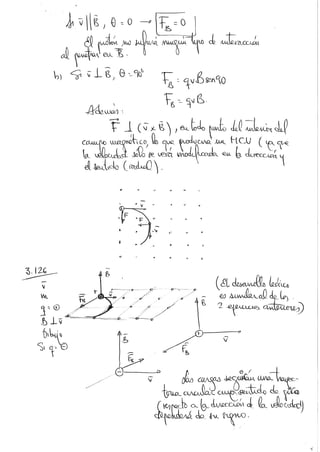 Si v̄ || B̄, θ = 0 → F_B = 0
El protón no sufrirá ningún tipo de interacción
al penetrar en B̄.
b) Si v̄ ⊥ B̄, θ = 90° F_B = q v B sen 90
F_B = q v B
Además:
F̄ ⊥ (v̄ x B̄), en todo punto del interior del
campo magnético, lo que producirá un MCU (ya que
la velocidad sólo se verá modificada en la dirección y
el sentido (radial)).
v̄
F
F
v
3.126
v̄
m
q = ⊕
B̄ ⊥ v̄
Dibujo
Si q = ⊖
B̄
F_B
v̄
(El desarrollo teórico
es similar al de los
2 ejercicios anteriores)
B̄
v̄
F_B
B̄
F_B
v̄
Las cargas seguirán una trayec-
toria circular cuyo sentido de giro
(respecto a la dirección de la velocidad)
dependerá de su signo.